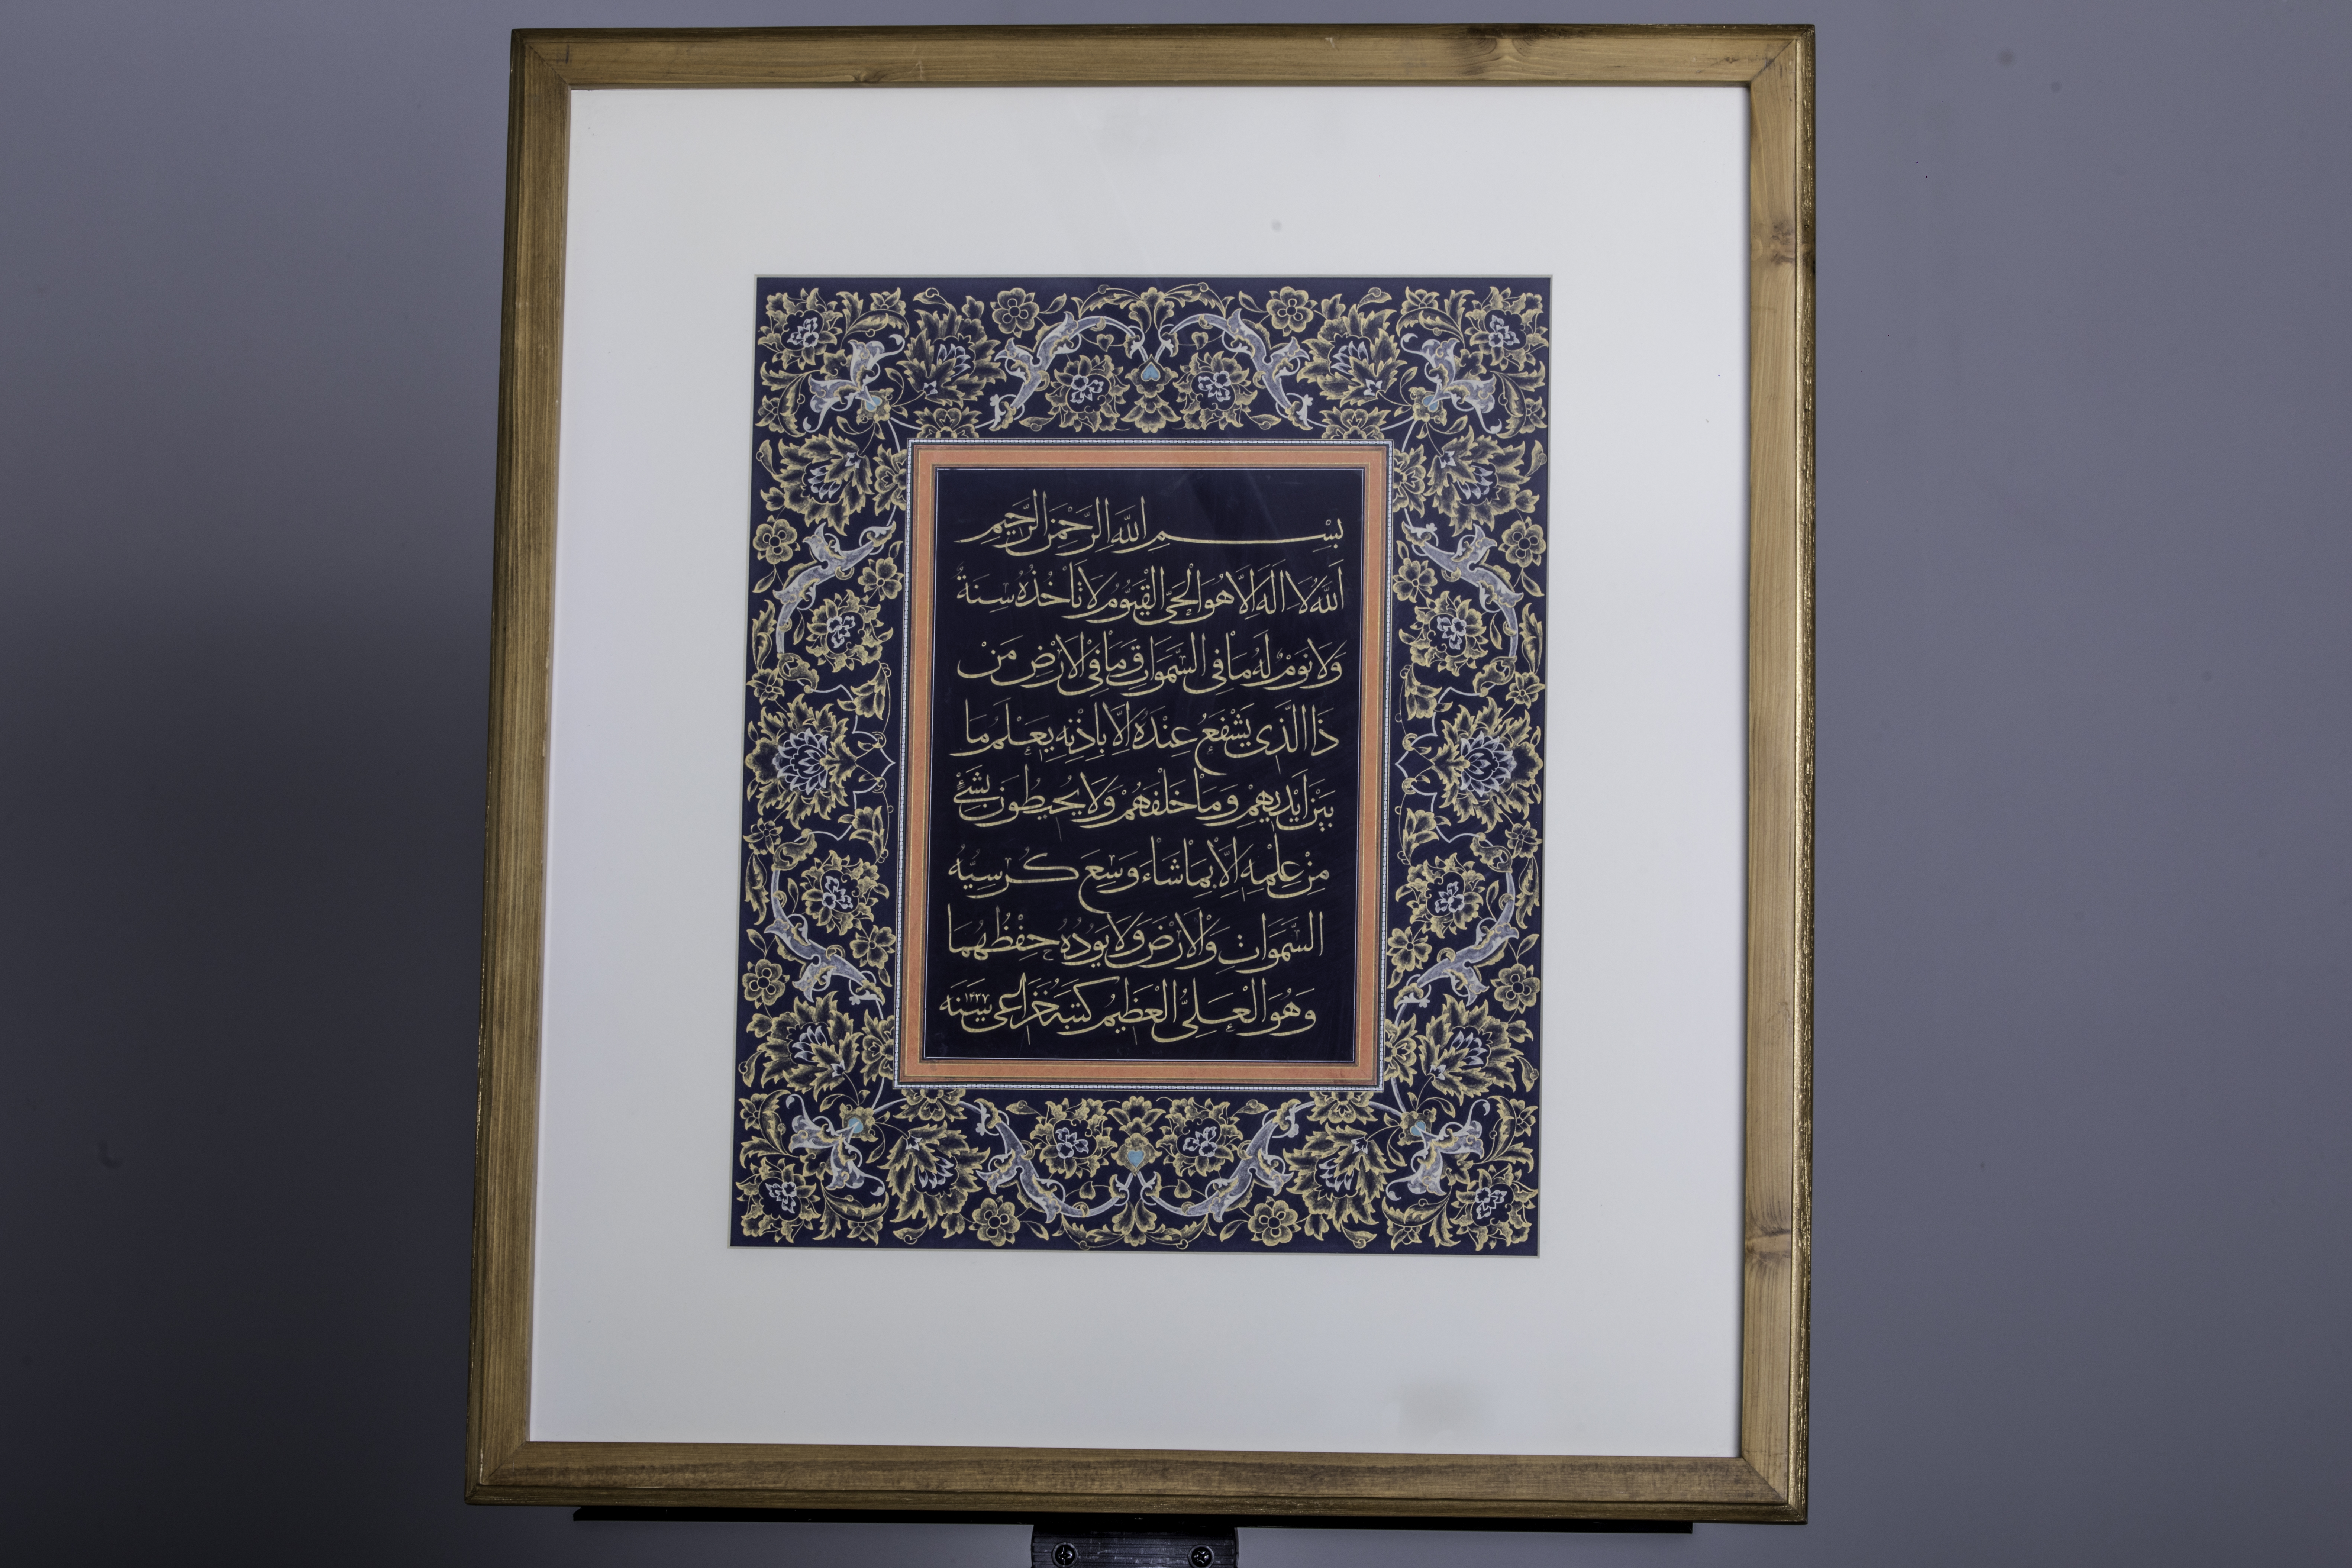 بِسْمِ اللّٰهِ الرَّحْمٰنِ الرَّحیمِ
اَللّٰهُ لا اِلٰهَ اِلّا هُوَ الْحَیُّ الْقَیّوُمُ لا تَأْخُذُهُ سِنَةٌ
وَلا نَوْمٌ لَهُ ما فِی السَّمٰواتِ وَما فِی الْاَرْضِ مَنْ
ذَا الَّذی یَشْفَعُ عِنْدَهُ اِلّا بِاِذْنِهِ یَعْلَمُ ما
بَیْنَ اَیْدیهِمْ وَما خَلْفَهُمْ وَلا یُحیطُونَ بِشَیْءٍ
مِنْ عِلْمِهِ اِلّا بِما شاءَ وَسِعَ کُرْسِیُّهُ
السَّمٰواتِ وَالْاَرْضَ وَلا یَؤُدُهُ حِفْظُهُما
وَهُوَ الْعَلِیُّ الْعَظیمُ کَتَبَهُ خُزاعی سَنَه ۱۴۲۷